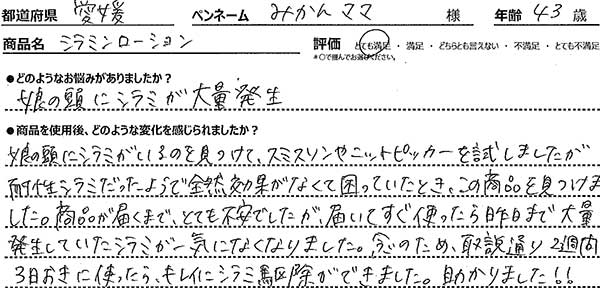 都道府県 愛媛 ペンネーム みかんママ 様 年齢 43 歳
商品名 シラミンローション 評価 とても満足 ・ 満足 ・ どちらとも言えない ・ 不満足 ・ とても不満足
*○で囲んでお選びください。
●どのようなお悩みがありましたか？
娘の頭にシラミが大量発生
●商品を使用後、どのような変化を感じられましたか？
娘の頭にシラミがいるのを見つけて、スミスリンやニットピッカーを試しましたが
耐性シラミだったようで全然効果がなくて困っていたとき、この商品を見つけま
した。商品が届くまで、とても不安でしたが、届いてすぐ使ったら昨日まで大量
発生していたシラミが一気になくなりました。念のため、取説通り2週間
3日おきに使ったら、キレイにシラミ駆除ができました。助かりました!!